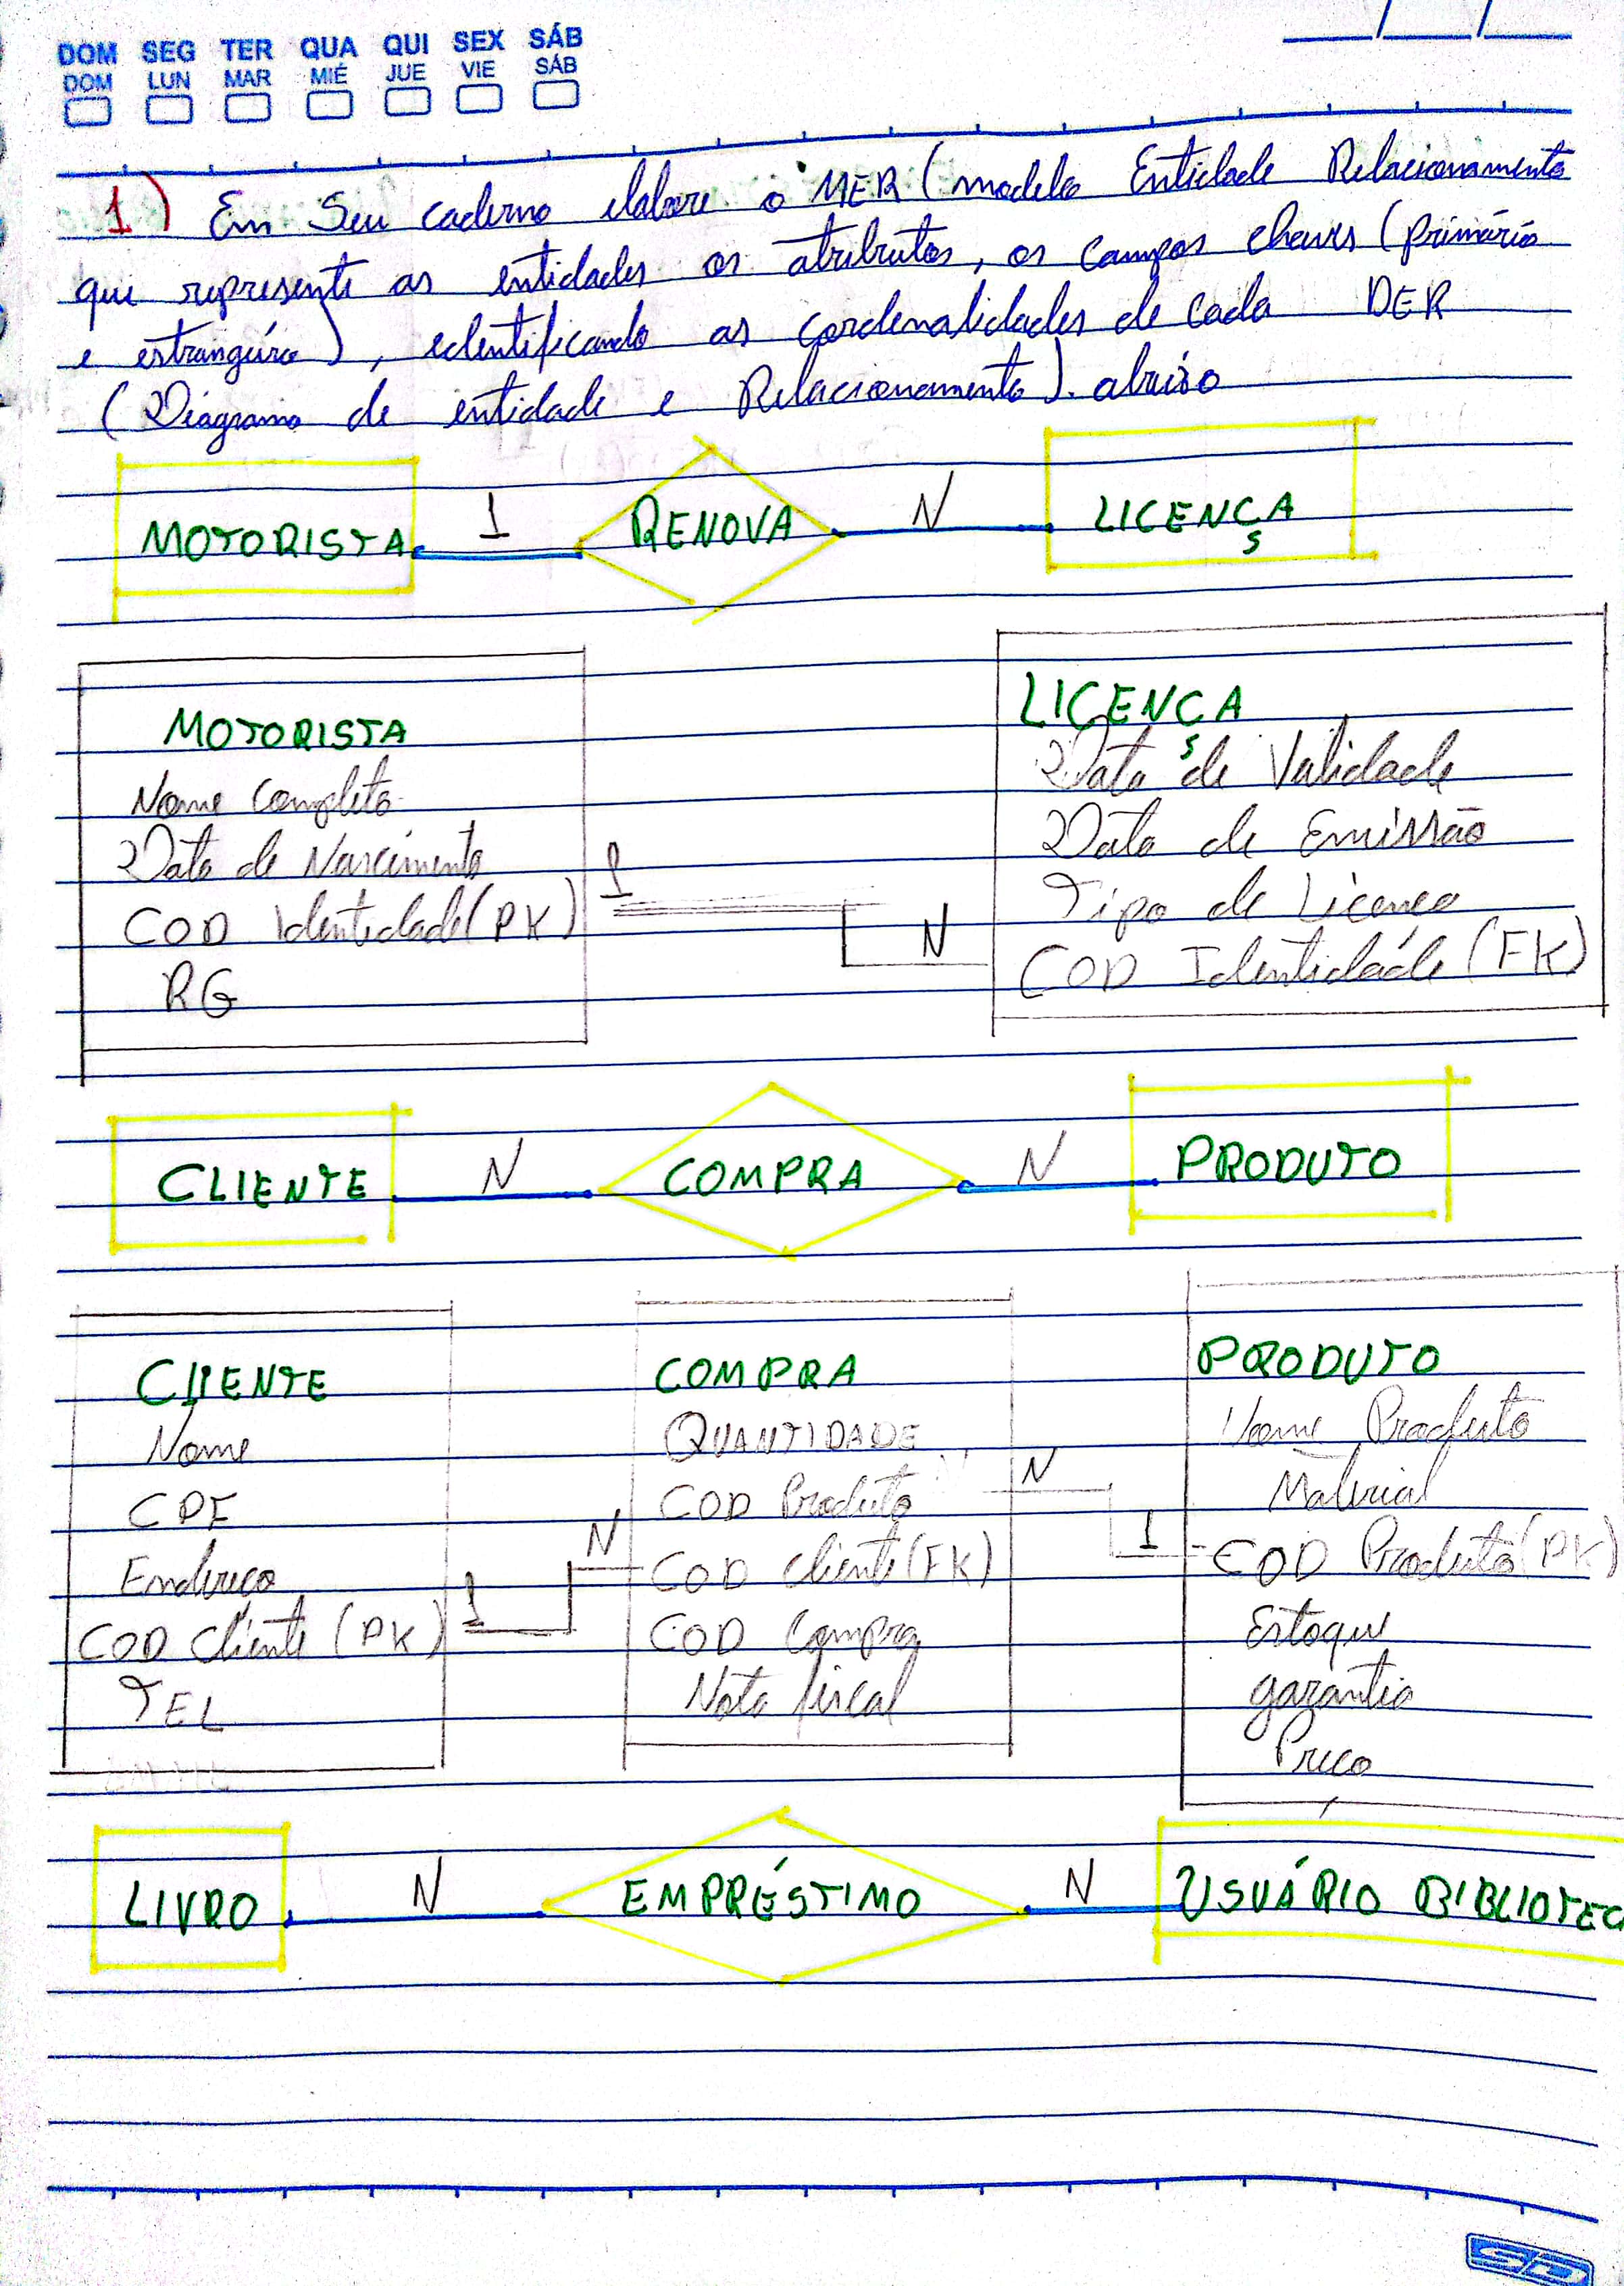 DOM SEG TER QUA QUI SEX SÁB
DOM LUN MAR MIÉ JUE VIE SÁB
1) Em Seu caderno elabore o MER (modelo Entidade Relacionamento
que represente as entidades os atributos, os campos chaves (primário
e estrangeiro), identificando as cardenalidades de cada DER
(Diagrama de entidade e Relacionamento). abaixo
MOTORISTA 1 RENOVA N LICENÇA
MOTORISTA
Nome Completo
Data de Nascimento
COD Identidade (PK)
RG
1
N
LICENÇA
Data de Validade
Data de Emissão
Tipo de Licença
COD Identidade (FK)
CLIENTE N COMPRA N PRODUTO
CLIENTE
Nome
CPF
Endereço
COD Cliente (PK)
TEL
1
N
COMPRA
QUANTIDADE
COD Produto
COD Cliente (FK)
COD Compra
Nota fiscal
N
1
PRODUTO
Nome Produto
Material
COD Produto (PK)
Estoque
garantia
Preço
LIVRO N EMPRÉSTIMO N USUÁRIO BIBLIOTEC
SD